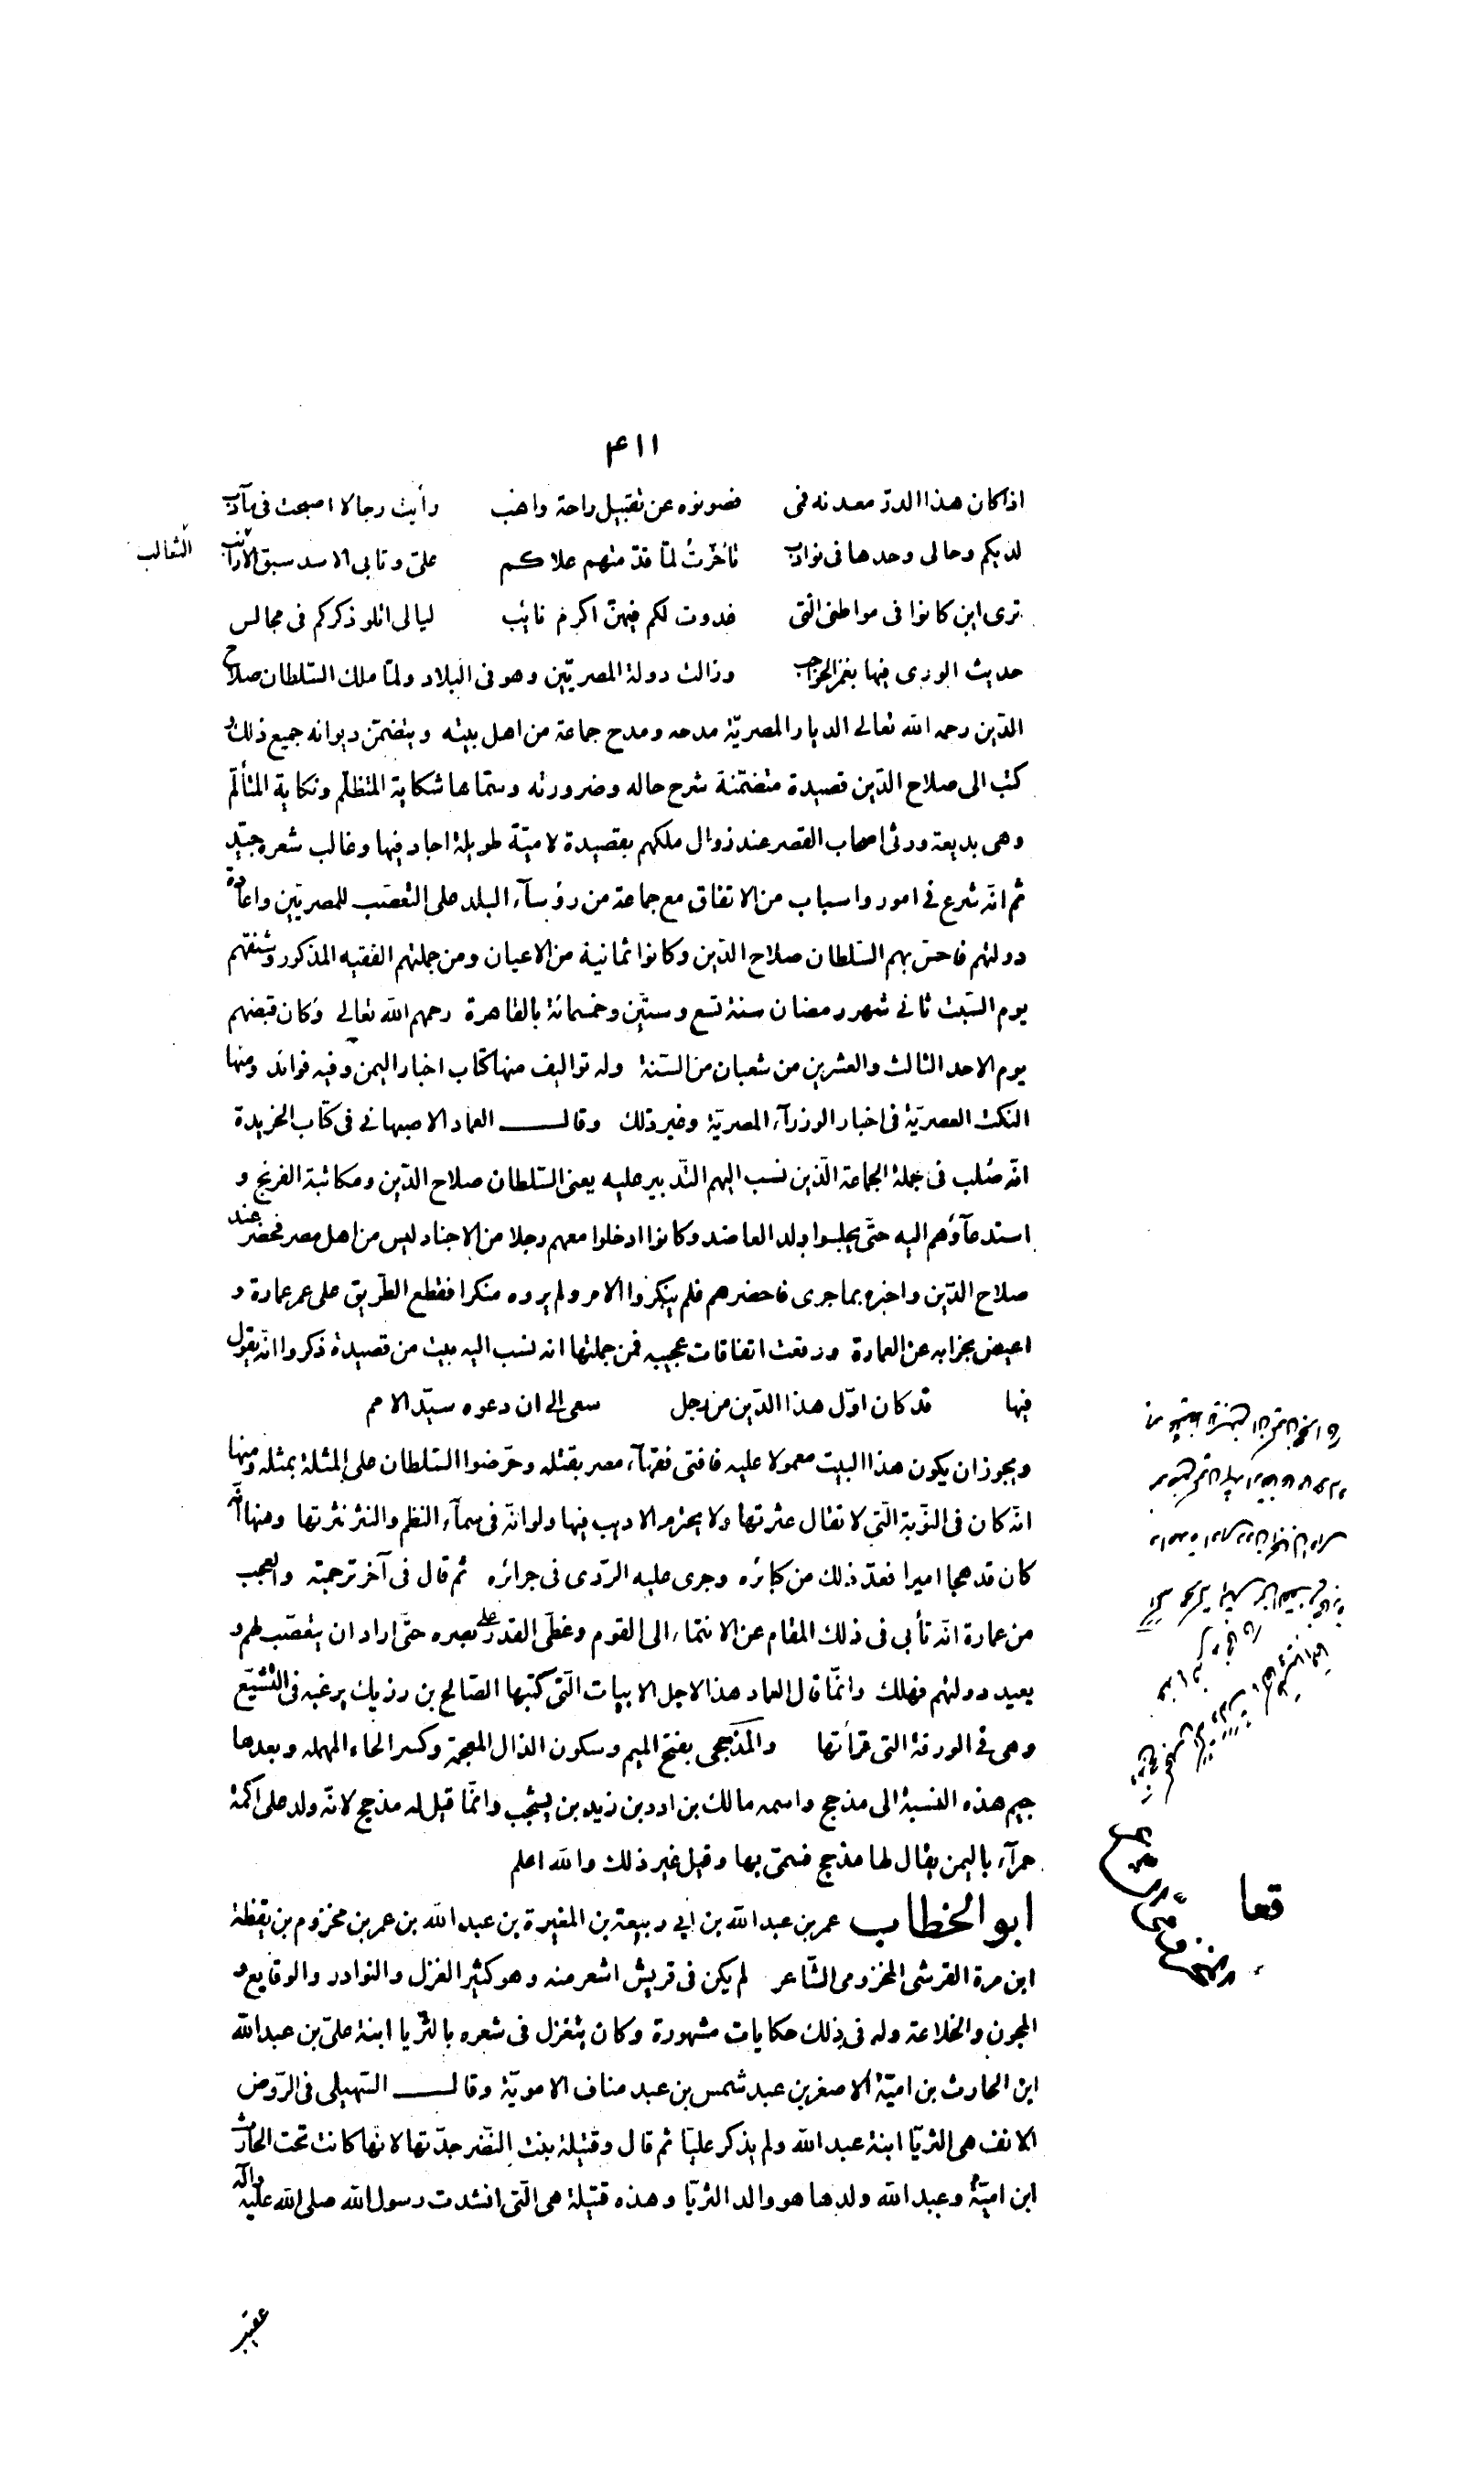 ٤١١
اذا كان هذا الدرّ معدنه فمى فصونوه عن تقبيل راحة واهب رأيت رجالا اصبحت فى مآدب
لديكم وحالى وحدها فى نوادب تأخّرتُ لمّا قدّمتهم علاكم علىّ وتابى الاسد سبق الارانب
الثعالب
ترى اين كانوا فى مواطنى الّتى غدوت لكم فيهنّ اكرم نائب ليالى اتلو ذكركم فى مجالس
حديث الورى فيها بغمز الحواجب وزالت دولة المصريّين وهو فى البلاد ولمّا ملك السّلطان صلاح
الدّين رحمه الله تعالى الديار المصريّة مدحه ومدح جماعة من اهل بيته ويتضمّن ديوانه جميع ذلك و
كتب الى صلاح الدّين قصيدة متضمّنة شرح حاله وضرورته وسمّاها شكاية المتظلّم ونكاية المتألّم
وهى بديعة ورثى اصحاب القصر عند زوال ملكهم بقصيدة لاميّة طويلة اجاد فيها وغالب شعره جيّد
ثم انّه شرع فى امور واسباب من الاتفاق مع جماعة من رؤسآء البلد على التعصّب للمصريّين واعادة
دولتهم فاحسّ بهم السّلطان صلاح الدّين وكانوا ثمانية من الاعيان ومن جملتهم الفقيه المذكور وشنقهم
يوم السّبت ثانى شهر رمضان سنة تسع وستّين وخمسمائة بالقاهرة رحمهم الله تعالى وكان قبضهم
يوم الاحد الثالث والعشرين من شعبان من السّنة وله تواليف منها كتاب اخبار اليمن وفيه فوائد ومنها
النكت العصريّة فى اخبار الوزرآء المصريّة وغير ذلك وقال العماد الاصبهانى فى كتاب الخريدة
انّه صُلب فى جملة الجماعة الّذين نسب اليهم التّدبير عليه يعنى السّلطان صلاح الدّين ومكاتبة الفرنج و
استدعآؤهم اليه حتّى يجلسوا ولد العاضد وكانوا ادخلوا معهم رجلا من الاجناد ليس من اهل مصر فحضر عند
صلاح الدّين واخبره بما جرى فاحضرهم فلم ينكروا الامر ولم يروه منكرا فقطع الطّريق على عمر عمارة و
اعيض بخرابه عن العمارة ووقعت اتفاقات عجيبه فمن جملتها انه نسب اليه بيت من قصيدة ذكروا انّه يقول
فيها قد كان اوّل هذا الدّين من رجل سعى الى ان دعوه سيّد الامم
ويجوز ان يكون هذا البيت معمولا عليه فافتى فقهآء مصر بقتله وحرّضوا السّلطان على المثلة بمثله ومنها
انّه كان فى النّوبة الّتى لا تقال عثرتها ولا يحترم الاديب فيها ولو انّه فى سمآء النظم والنثر نثرتها ومنها انّه
كان قد هجا اميرا فعدّ ذلك من كبائره وجرى عليه الرّدى فى جرائره ثم قال فى آخر ترجمته والعجب
من عمارة انّه تأبى فى ذلك المقام عن الانتماء الى القوم وغطّى القدر على بصره حتّى اراد ان يتعصّب لهم و
يعيد دولتهم فهلك وانّما قال العماد هذا لاجل الابيات الّتى كتبها الصّالح بن رزيك يرغبه فى التشيّع
وهى فى الورقة التى قرأتها والمَذحِجى بفتح الميم وسكون الذال المعجمة وكسر الحاء المهمله وبعدها
جيم هذه النسبة الى مذحج واسمه مالك بن ادد بن زيد بن يشجب وانّما قيل له مذحج لانّه ولد على اكمة
حمرآء باليمن يقال لها مذحج فسمّى بها وقيل غير ذلك والله اعلم
قعا
ابو الخطاب عمر بن عبد الله بن ابى ربيعة بن المغيرة بن عبد الله بن عمر بن مخزوم بن يقظة
ابن مرة القرشى المخزومى الشّاعر لم يكن فى قريش اشعر منه وهو كثير الغزل والنوادر والوقايع و
المجون والخلاعة وله فى ذلك حكايات مشهورة وكان يتغزل فى شعره بالثّريا ابنة علىّ بن عبد الله
ابن الحارث بن اميّة الاصغر بن عبد شمس بن عبد مناف الامويّة وقال السّهيلى فى الرّوض
الانف هى الثريّا ابنة عبد الله ولم يذكر عليّا ثم قال وقتيلة بنت النّضر جدّتها لانّها كانت تحت الحارث
ابن اميّة وعبد الله ولدها هو والد الثريّا وهذه قتيلة هى الّتى انشدت رسول الله صلى الله عليه وآله